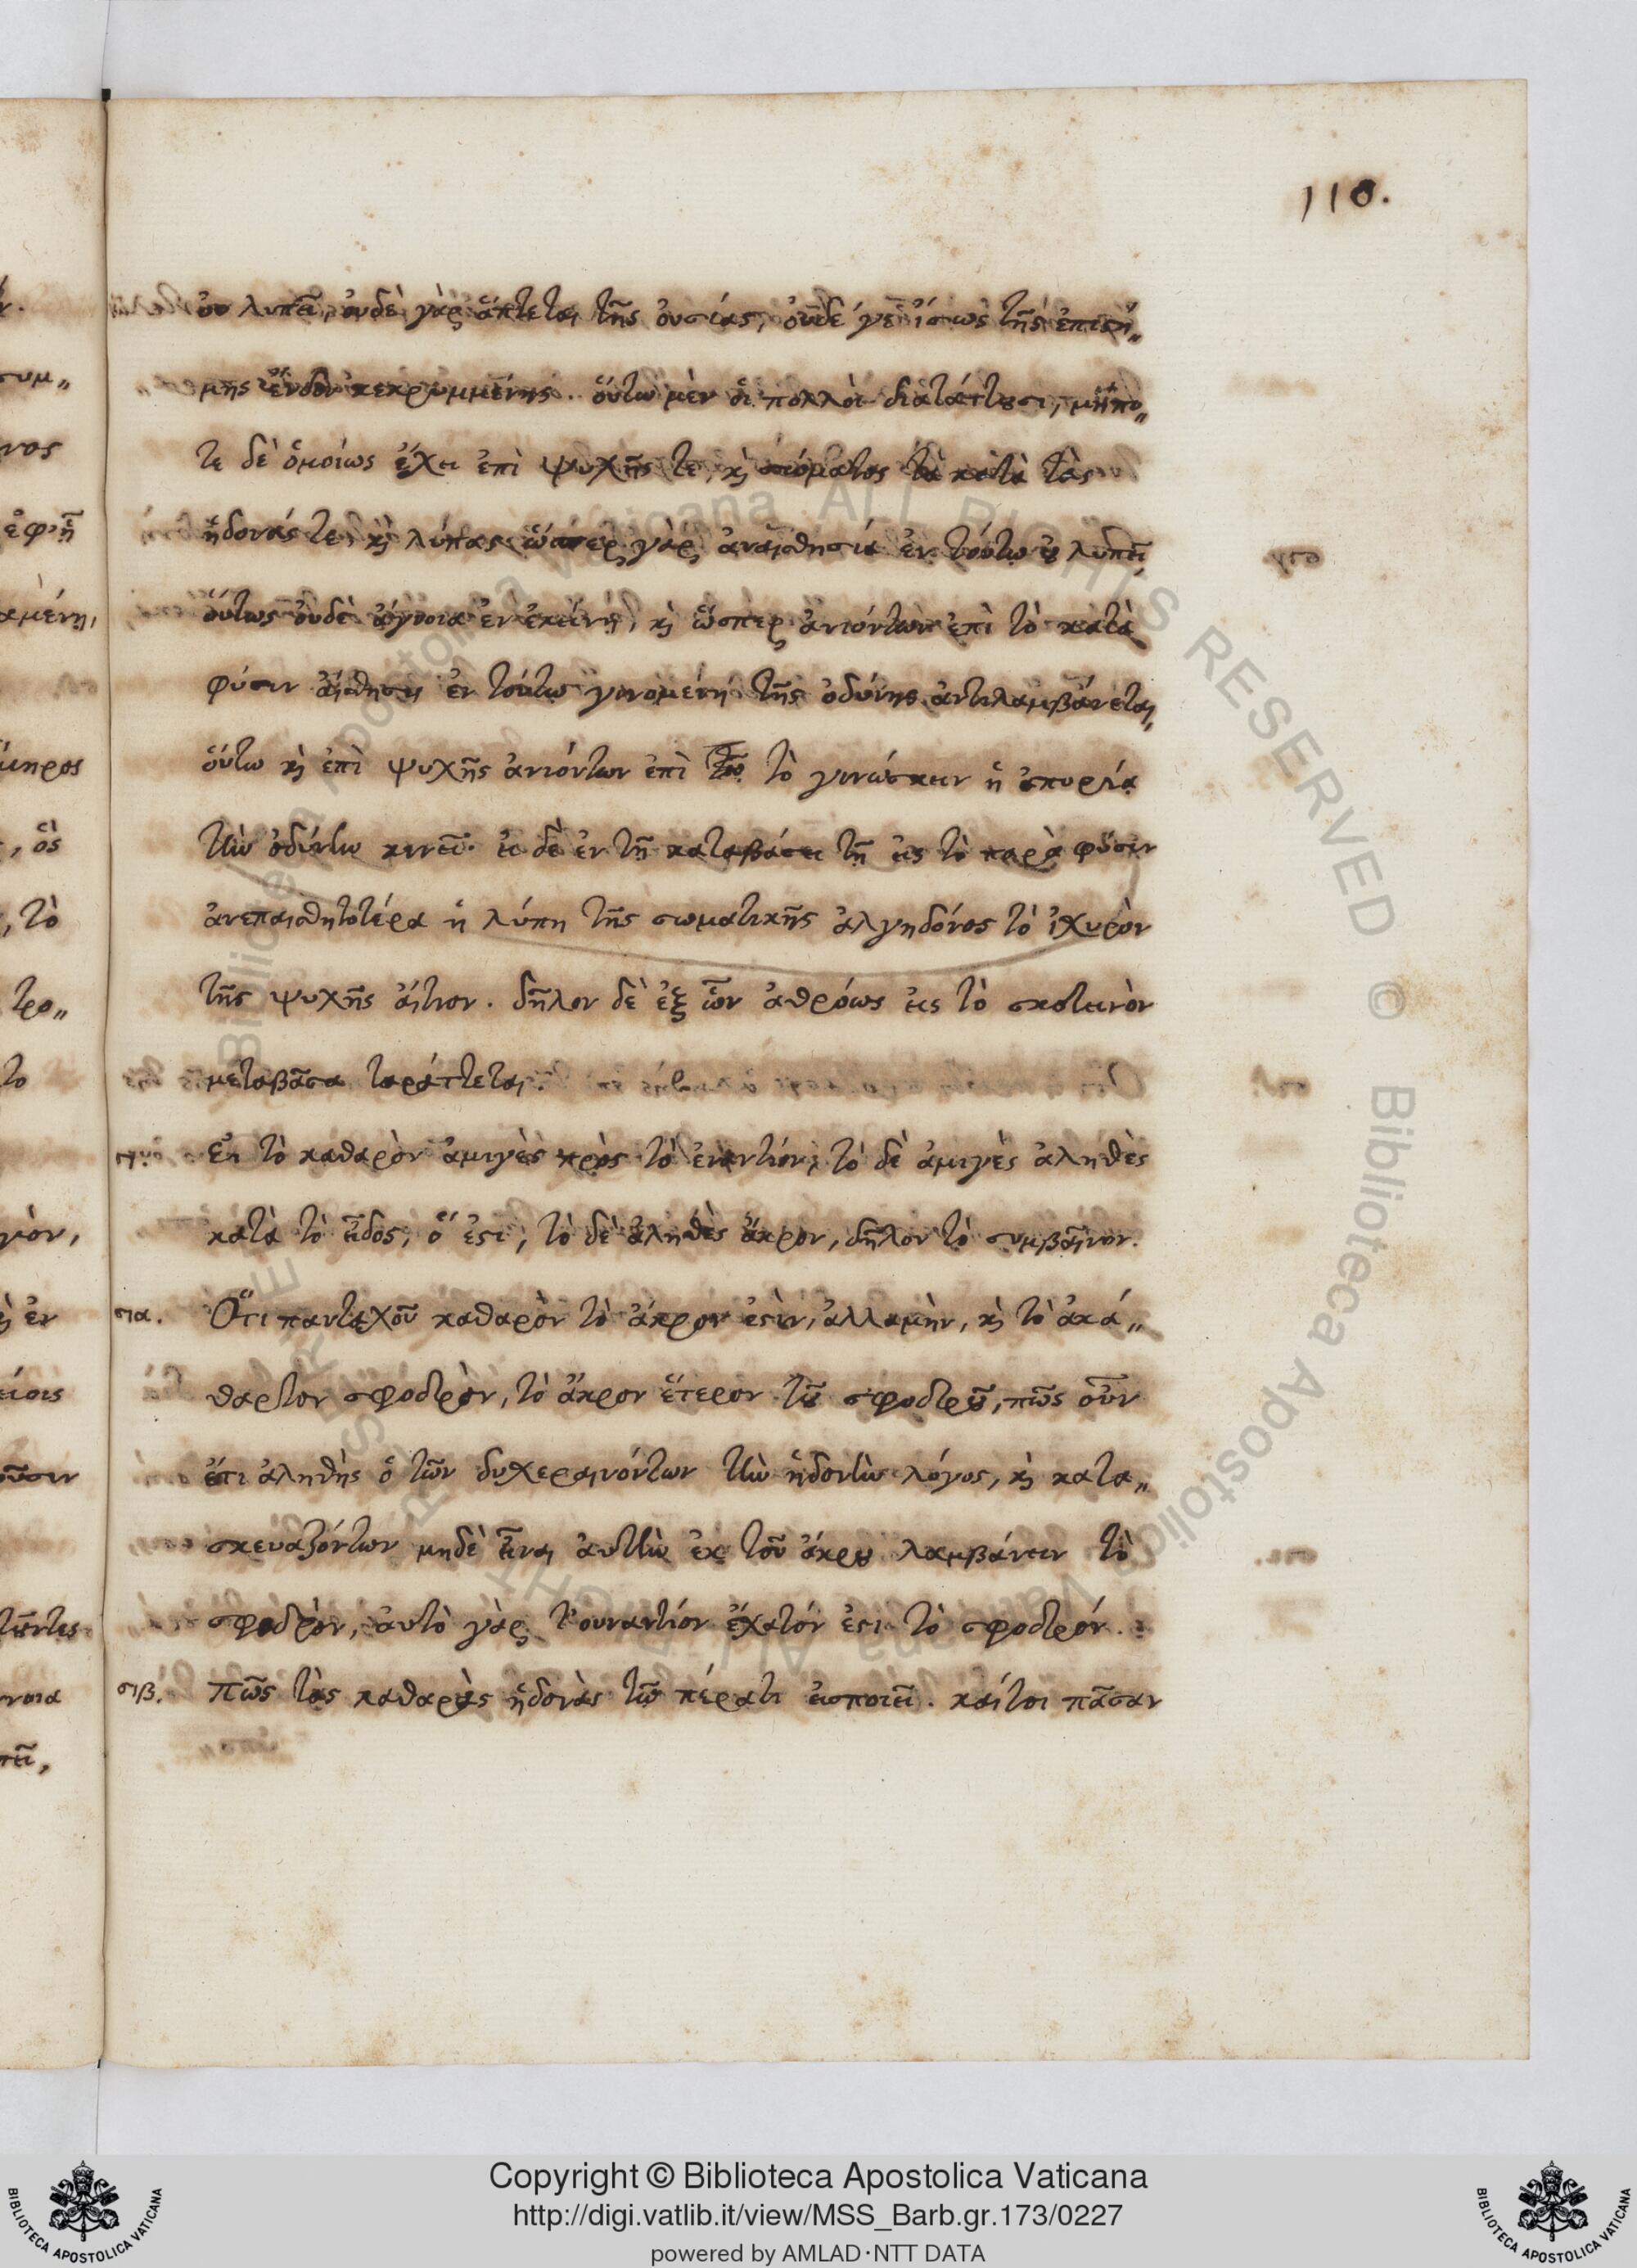 110.
οὐ λυπεῖ, οὐδὲ γὰρ ἅπτεται τῆς οὐσίας, οὐδέ γε ἴσως τῆς ἐπιστή„
μης ἔνδον κεκρυμμένης. οὕτω μὲν οἱ πολλοὶ διατάττουσι, μήπο„
τε δὲ ὁμοίως ἔχει ἐπὶ ψυχῆς τε, καὶ σώματος τὰ κατὰ τὰς
ἡδονάς τε, καὶ λύπας ὥσπερ γὰρ ἀναισθησία ἐν τούτῳ οὐ λυπεῖ,
οὕτως οὐδὲ ἄγνοια ἐν ἐκείνῃ, καὶ ὥσπερ ἀνιόντων ἐπὶ τὸ κατὰ
φύσιν αἴσθησις ἐν τούτῳ γινομένη τῆς ὀδύνης ἀντιλαμβάνεται,
οὕτω καὶ ἐπὶ ψυχῆς ἀνιόντων ἐπὶ τὸ γινώσκειν ἡ ἀπορία
τὴν ὀδύνην κινεῖ. εἰ δὲ ἐν τῇ καταβάσει τῇ εἰς τὸ παρὰ φύσιν
ἀνεπαισθητοτέρα ἡ λύπη τῆς σωματικῆς ἀλγηδόνος τὸ ἰσχυρὸν
τῆς ψυχῆς αἴτιον. δῆλον δὲ ἐξ ὧν ἀθρόως εἰς τὸ σκοτεινὸν
μεταβᾶσα ταράττεται.
σι. Εἰ τὸ καθαρὸν ἀμιγὲς πρὸς τὸ ἐναντίον, τὸ δὲ ἀμιγὲς ἀληθὲς
κατὰ τὸ εἶδος, ὅ ἐστι, τὸ δὲ ἀληθὲς ἄκρον, δῆλον τὸ συμβαῖνον.
σια. Ὅτι πανταχοῦ καθαρὸν τὸ ἄκρον ἐστὶν, ἀλλαμὴν, καὶ τὸ ἀκά„
θαρτον σφοδρὸν, τὸ ἄκρον ἕτερον τοῦ σφοδροῦ, πῶς οὖν
ἔτι ἀληθὴς ὁ τῶν δυσχεραινόντων τὴν ἡδονὴν λόγος, καὶ κατα„
σκευαζόντων μηδὲ εἶναι αὐτὴν ἐκ τοῦ ἄκρου λαμβάνειν τὸ
σφοδρὸν, αὐτὸ γὰρ τ'ουναντίον ἔσχατόν ἐστι τὸ σφοδρόν.
σιβ. Πῶς τὰς καθαρὰς ἡδονὰς τῷ πέρατι εἰσποιεῖ. καίτοι πᾶσαν
Copyright © Biblioteca Apostolica Vaticana
http://digi.vatlib.it/view/MSS_Barb.gr.173/0227
powered by AMLAD·NTT DATA